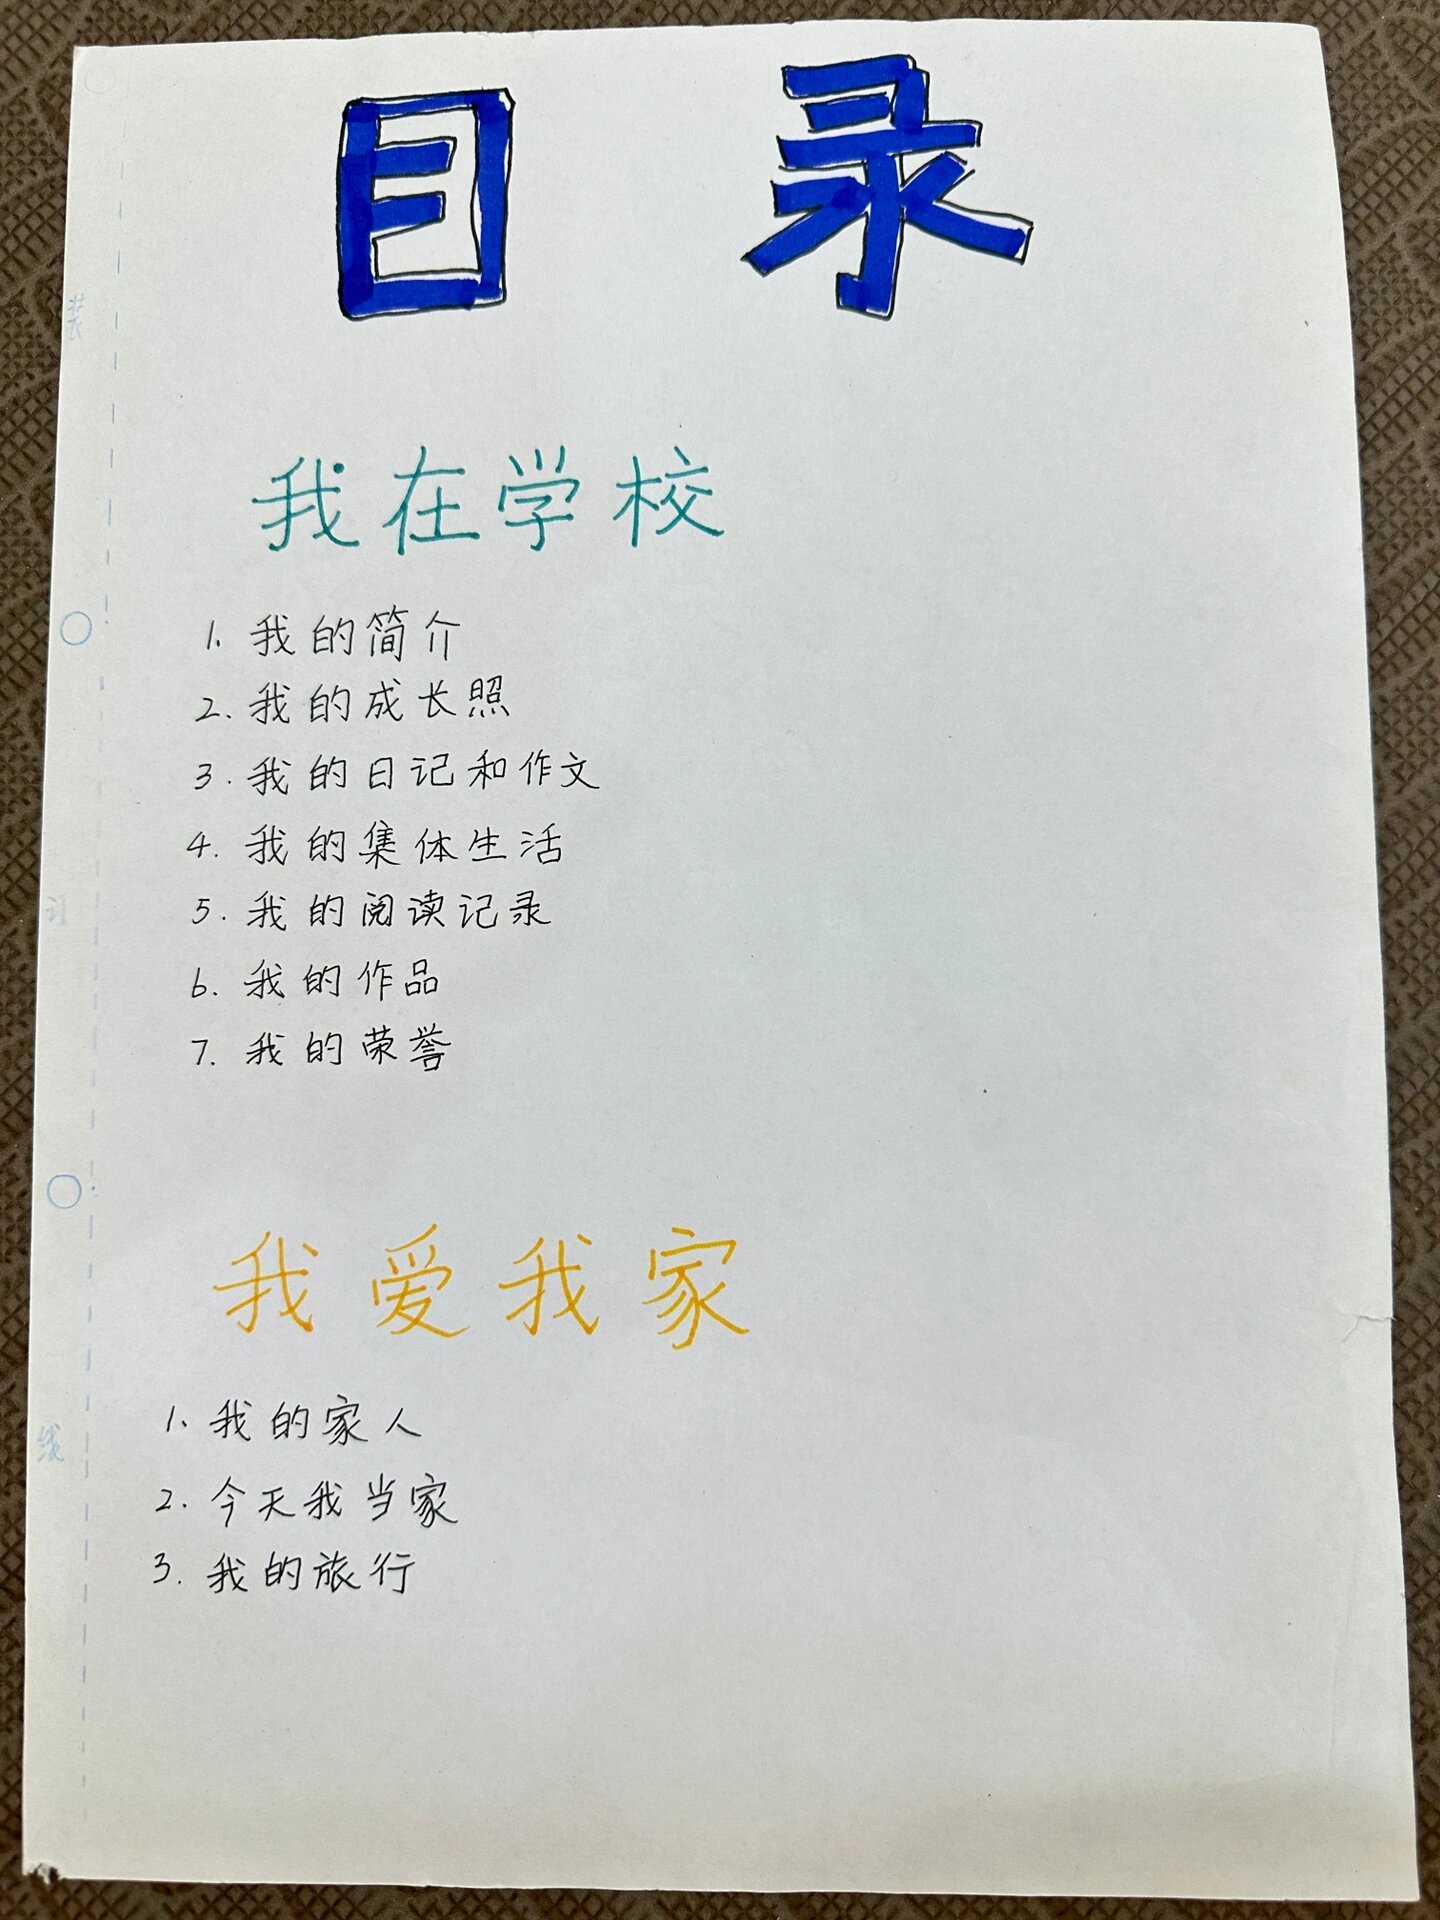 目录
我在学校
1. 我的简介
2. 我的成长照
3. 我的日记和作文
4. 我的集体生活
5. 我的阅读记录
6. 我的作品
7. 我的荣誉
我爱我家
1. 我的家人
2. 今天我当家
3. 我的旅行
装
订
线